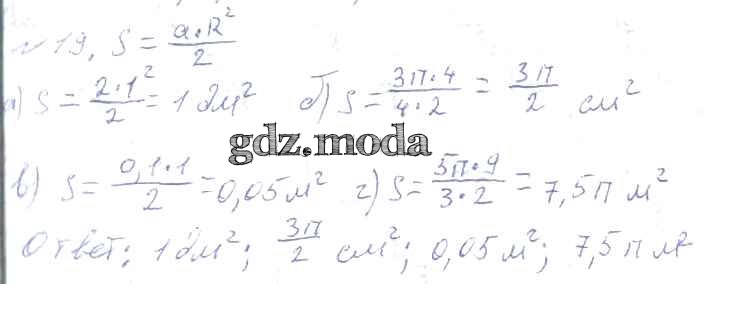 №19. S = a·R²/2
а) S = 2·1²/2 = 1 дм² б) S = 3π·4/4·2 = 3π/2 см²
gdz.moda
в) S = 0,1·1/2 = 0,05 м² г) S = 5π·9/3·2 = 7,5π м²
Ответ: 1 дм²; 3π/2 см²; 0,05 м²; 7,5π м²